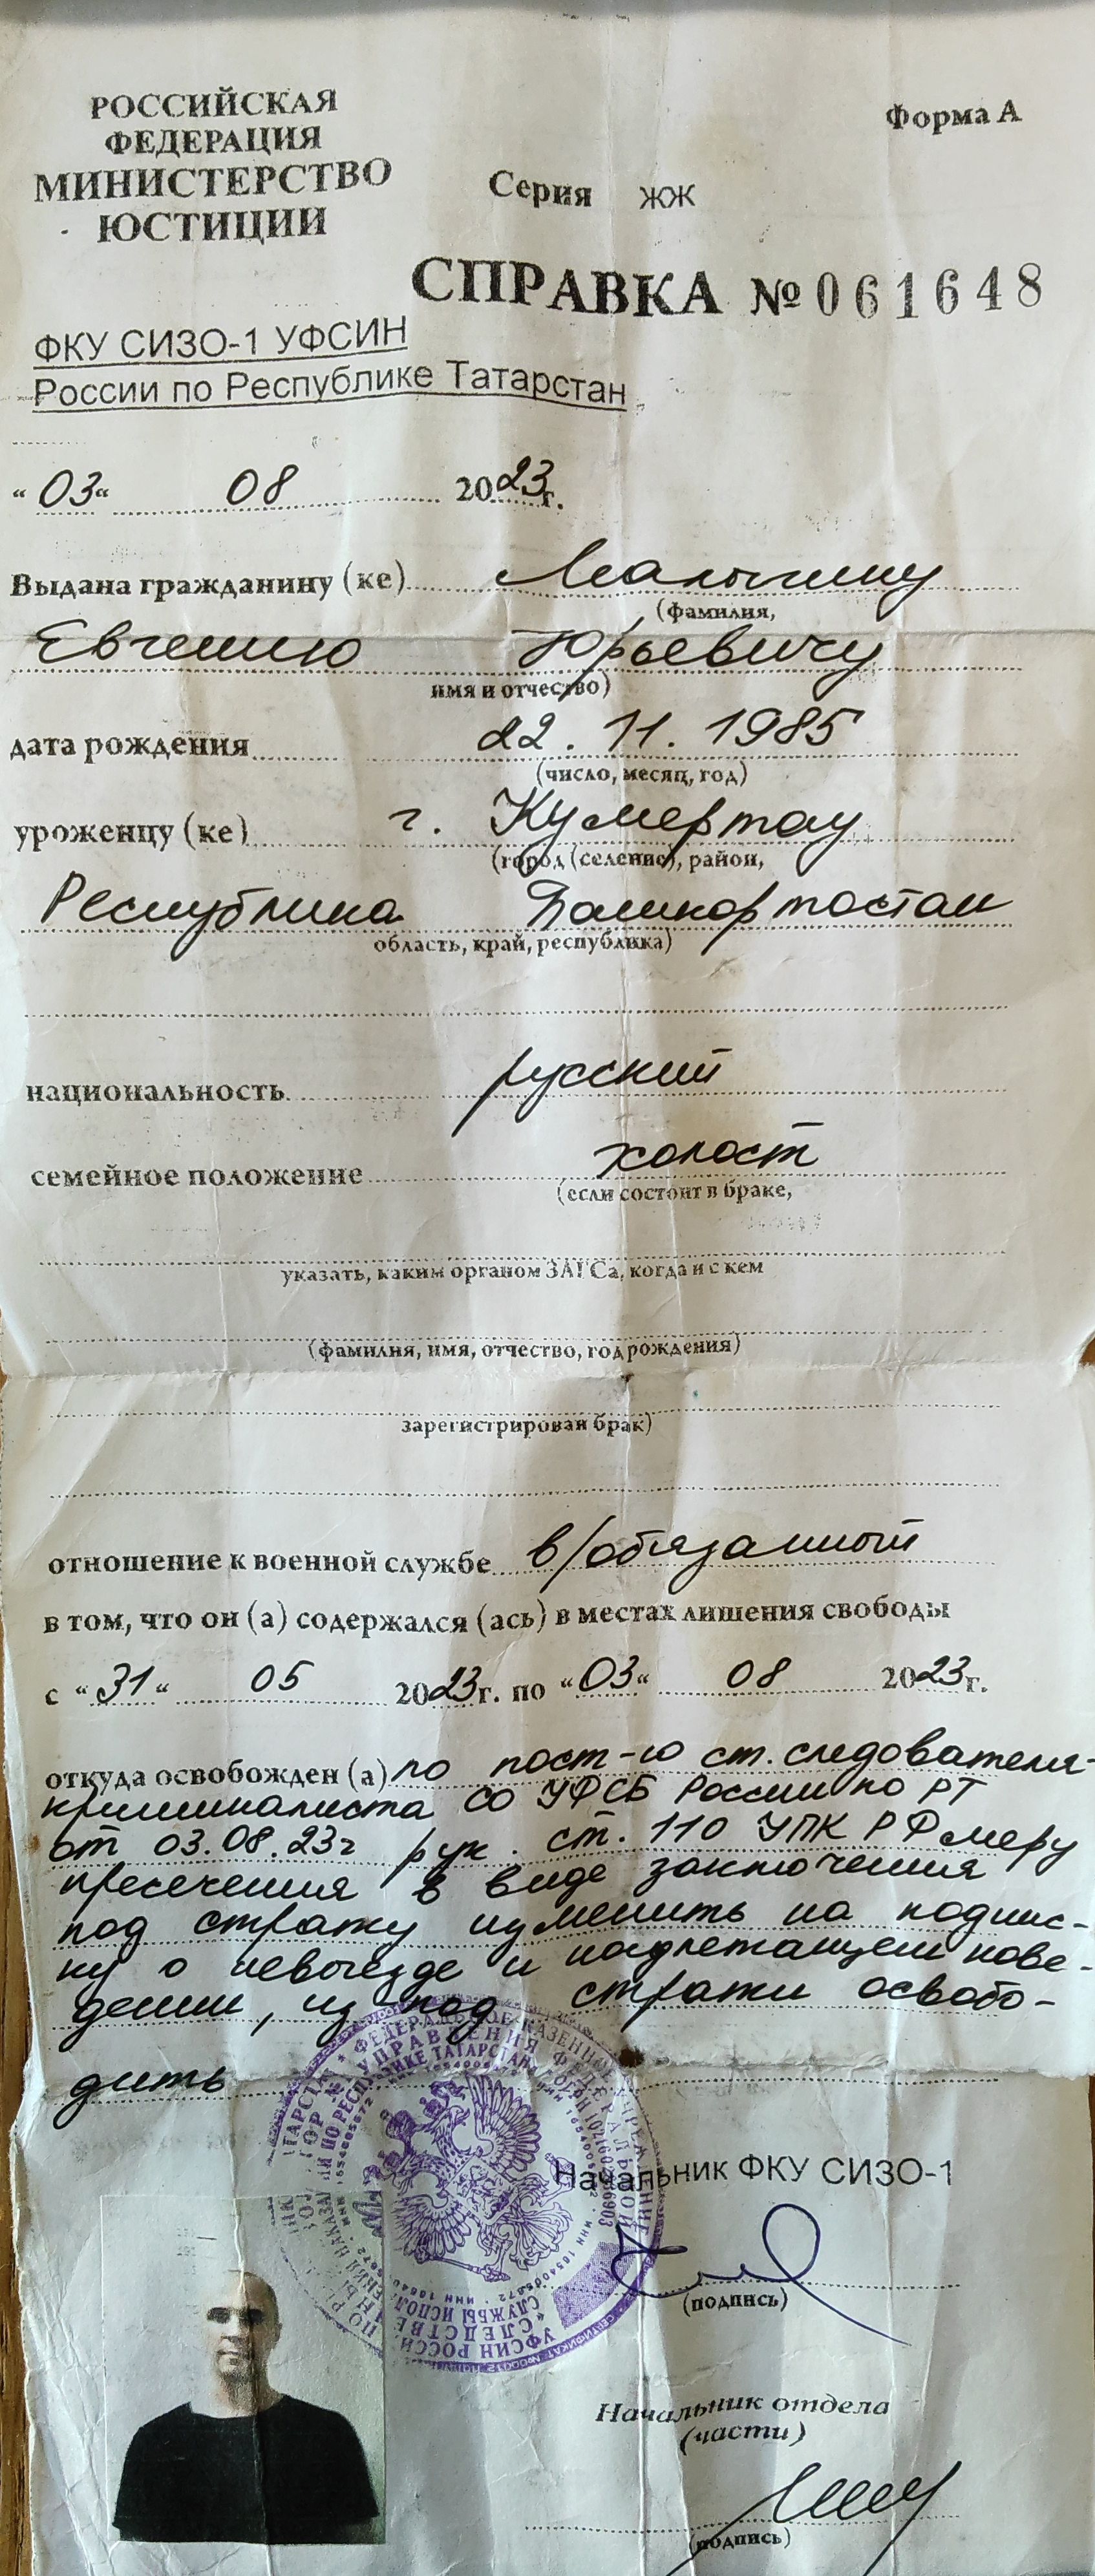 РОССИЙСКАЯ
ФЕДЕРАЦИЯ
МИНИСТЕРСТВО
ЮСТИЦИИ
Форма А
Серия ЖЖ
СПРАВКА №061648
ФКУ СИЗО-1 УФСИН
России по Республике Татарстан
"03" 08 2023г.
Выдана гражданину (ке) Малыгину
(фамилия,
Евгению Юрьевичу
имя и отчество)
дата рождения 22.11.1985
(число, месяц, год)
уроженцу (ке) г. Кумертау
(город (селение), район,
Республика Башкортостан
область, край, республика)
национальность русский
семейное положение холост
(если состоит в браке,
указать, каким органом ЗАГСа, когда и с кем
(фамилия, имя, отчество, год рождения)
зарегистрирован брак)
отношение к военной службе в/обязанный
в том, что он (а) содержался (ась) в местах лишения свободы
с "31" 05 2023г. по "03" 08 2023г.
откуда освобожден (а) по пост-ю ст. следователя-
криминалиста СО УФСБ России по РТ
от 03.08.23г рук. ст. 110 УПК РФ меру
пресечения в виде заключения
под стражу изменить на подпис-
ку о невыезде и надлежащем пове-
дении, из под стражи освобо-
дить
Начальник ФКУ СИЗО-1
(подпись)
Начальник отдела
(части)
(подпись)